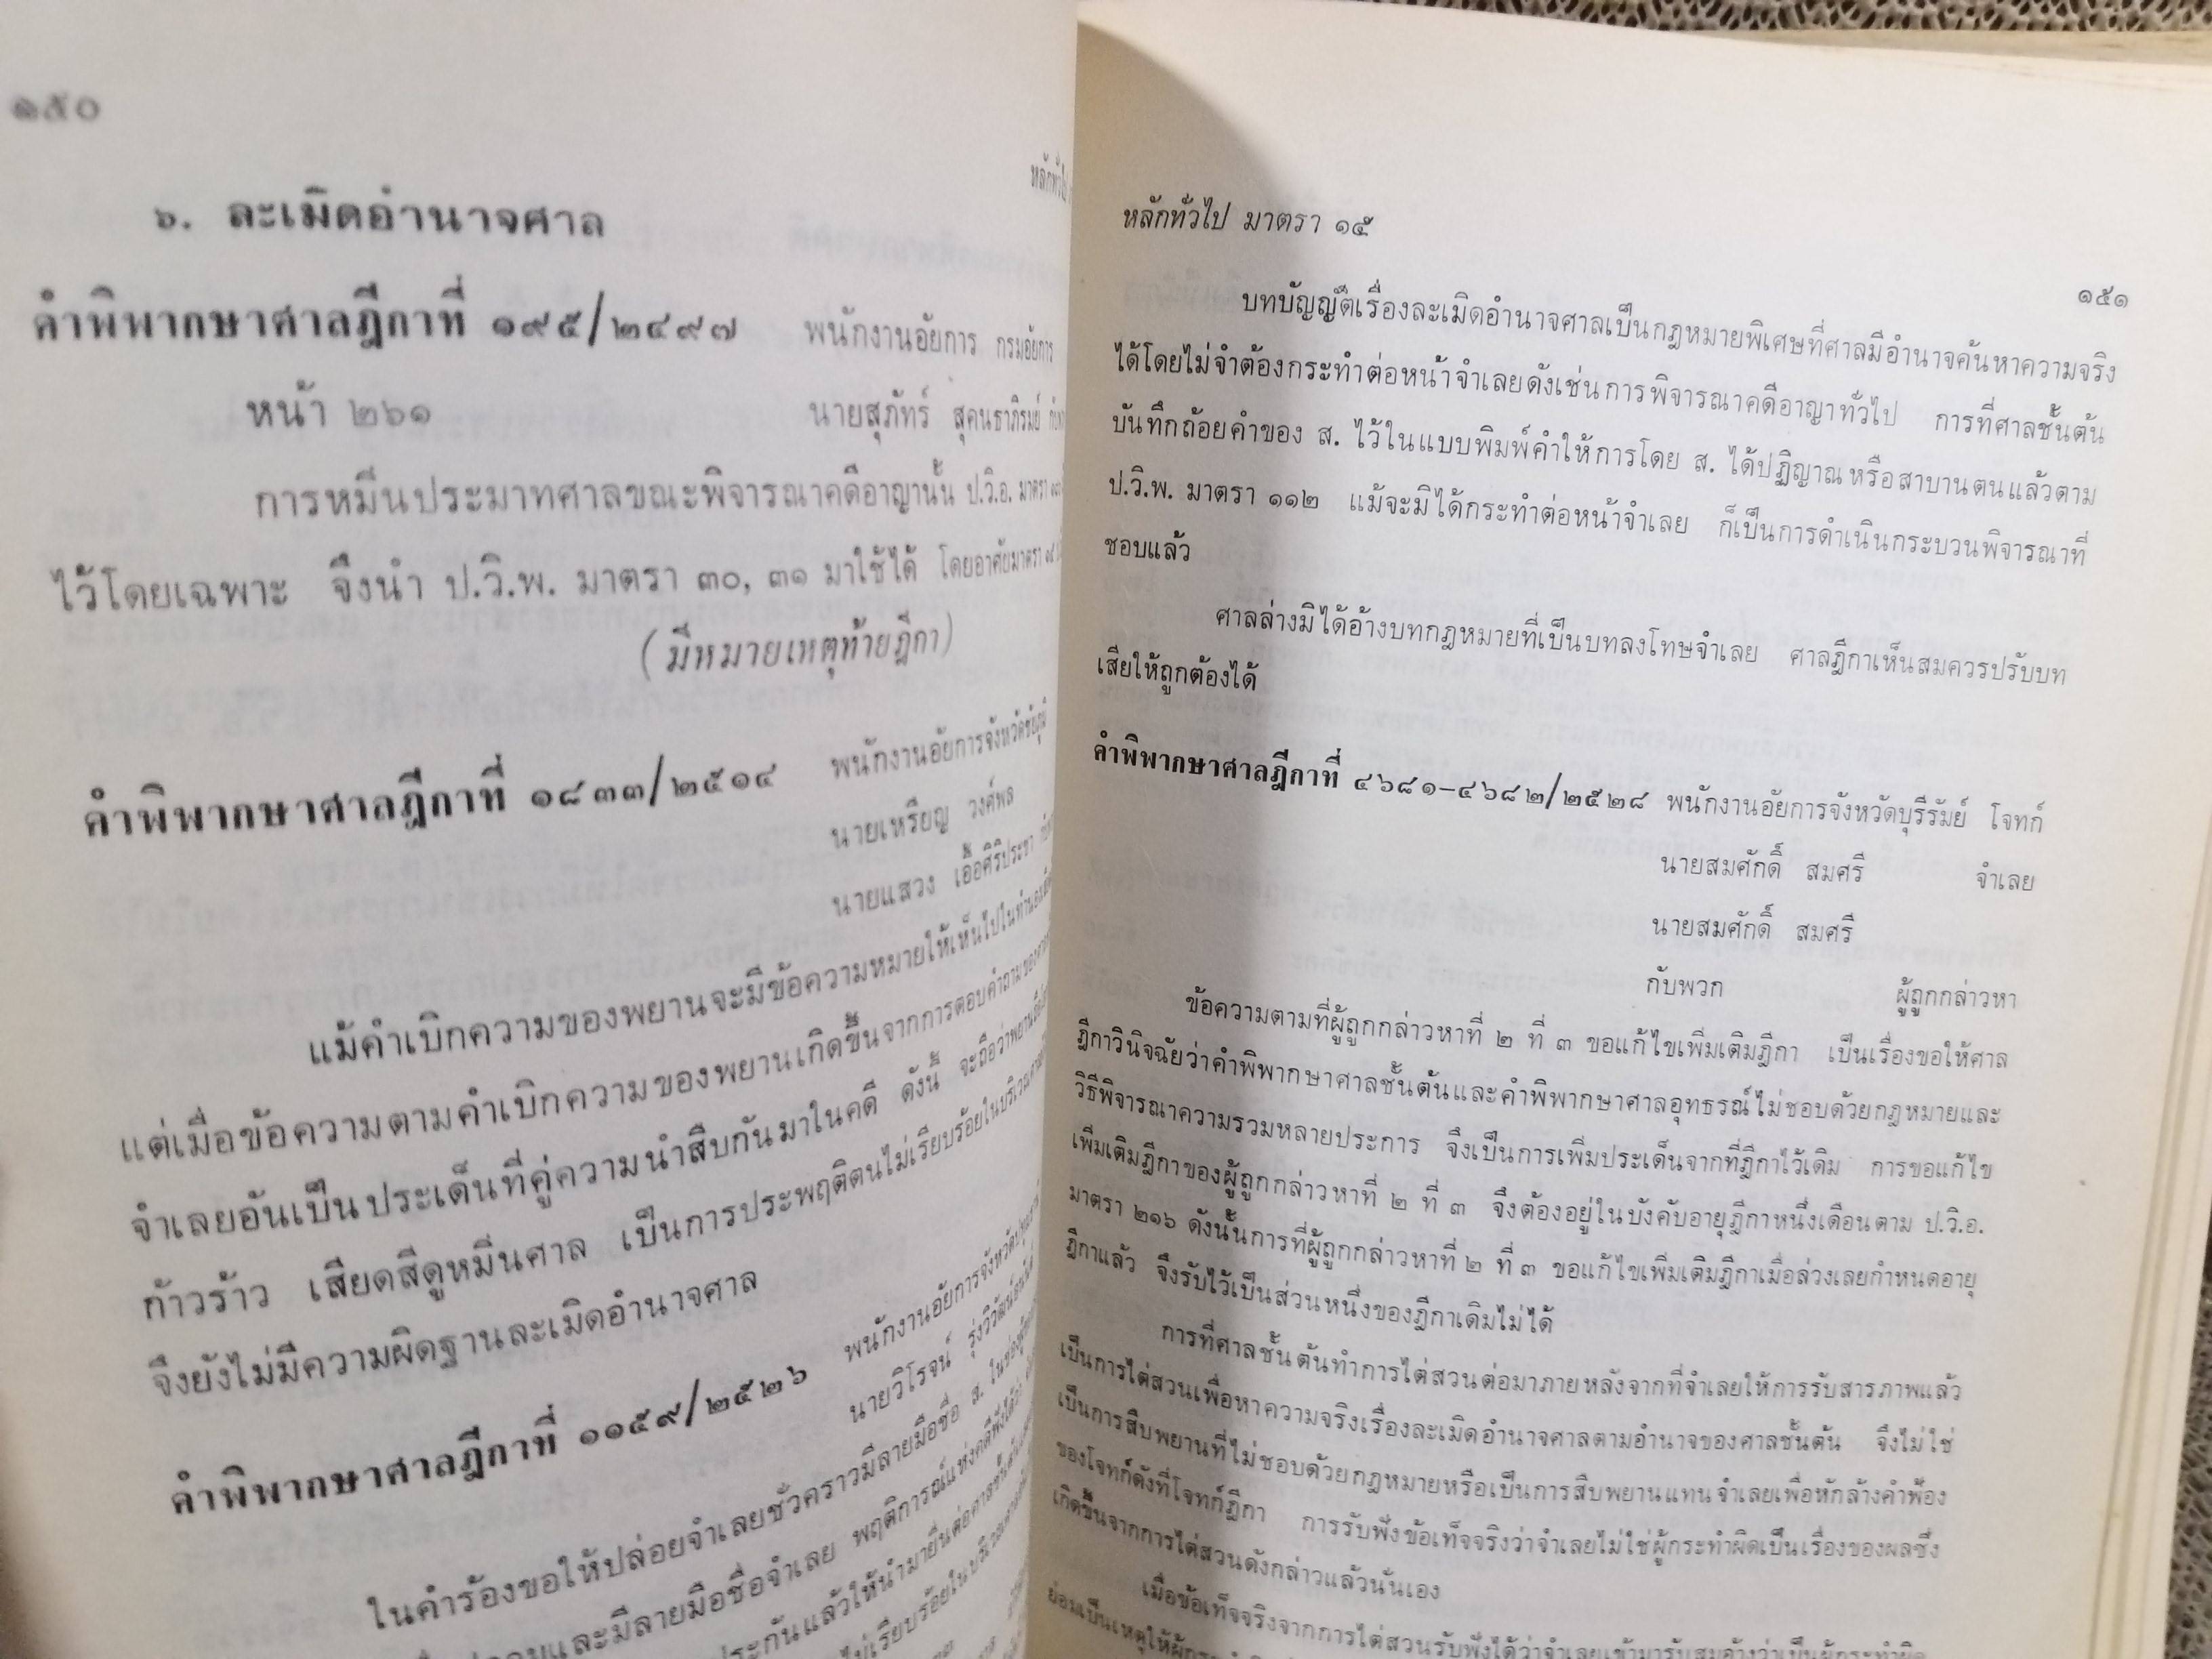 ๑๕๐
หลักทั่วไป
๖. ละเมิดอำนาจศาล
คำพิพากษาศาลฎีกาที่ ๑๙๕/๒๔๙๗ พนักงานอัยการ กรมอัยการ
หน้า ๒๖๑ นายสุภัทร์ สุคนธาภิรมย์
การหมิ่นประมาทศาลขณะพิจารณาคดีอาญานั้น ป.วิ.อ. มาตรา
ไว้โดยเฉพาะ จึงนำ ป.วิ.พ. มาตรา ๓๐, ๓๑ มาใช้ได้ โดยอาศัยมาตรา
(มีหมายเหตุท้ายฎีกา)
คำพิพากษาศาลฎีกาที่ ๑๘๓๓/๒๕๑๔ พนักงานอัยการจังหวัดชัยภูมิ
นายเหรียญ วงศ์พล
นายแสวง เอื้อศิริประชา
แม้คำเบิกความของพยานจะมีข้อความหมายให้เห็นไปในทำนอง
แต่เมื่อข้อความตามคำเบิกความของพยานเกิดขึ้นจากการตอบคำถามของ
จำเลยอันเป็นประเด็นที่คู่ความนำสืบกันมาในคดี ดังนี้ จะถือว่าพยาน
ก้าวร้าว เสียดสีดูหมิ่นศาล เป็นการประพฤติตนไม่เรียบร้อยในบริเวณ
จึงยังไม่มีความผิดฐานละเมิดอำนาจศาล
คำพิพากษาศาลฎีกาที่ ๑๑๕๙/๒๕๒๖ พนักงานอัยการจังหวัด
นายวิโรจน์ รุ่งวิวัฒน์
ในคำร้องขอให้ปล่อยจำเลยชั่วคราวมีลายมือชื่อ ส. ในช่อง
และมีลายมือชื่อจำเลย พฤติการณ์แห่งคดีฟังได้ว่า
ประกันแล้วให้นำมายื่นต่อศาลชั้นต้น
ไม่เรียบร้อยในบริเวณ
หลักทั่วไป มาตรา ๑๕
๑๕๑
บทบัญญัติเรื่องละเมิดอำนาจศาลเป็นกฎหมายพิเศษที่ศาลมีอำนาจค้นหาความจริง
ได้โดยไม่จำต้องกระทำต่อหน้าจำเลยดังเช่นการพิจารณาคดีอาญาทั่วไป การที่ศาลชั้นต้น
บันทึกถ้อยคำของ ส. ไว้ในแบบพิมพ์คำให้การโดย ส. ได้ปฏิญาณหรือสาบานตนแล้วตาม
ป.วิ.พ. มาตรา ๑๑๒ แม้จะมิได้กระทำต่อหน้าจำเลย ก็เป็นการดำเนินกระบวนพิจารณาที่
ชอบแล้ว
ศาลล่างมิได้อ้างบทกฎหมายที่เป็นบทลงโทษจำเลย ศาลฎีกาเห็นสมควรปรับบท
เสียให้ถูกต้องได้
คำพิพากษาศาลฎีกาที่ ๔๖๘๑-๔๖๘๒/๒๕๒๘ พนักงานอัยการจังหวัดบุรีรัมย์ โจทก์
นายสมศักดิ์ สมศรี จำเลย
นายสมศักดิ์ สมศรี
กับพวก ผู้ถูกกล่าวหา
ข้อความตามที่ผู้ถูกกล่าวหาที่ ๒ ที่ ๓ ขอแก้ไขเพิ่มเติมฎีกา เป็นเรื่องขอให้ศาล
ฎีกาวินิจฉัยว่าคำพิพากษาศาลชั้นต้นและคำพิพากษาศาลอุทธรณ์ไม่ชอบด้วยกฎหมายและ
วิธีพิจารณาความรวมหลายประการ จึงเป็นการเพิ่มประเด็นจากที่ฎีกาไว้เดิม การขอแก้ไข
เพิ่มเติมฎีกาของผู้ถูกกล่าวหาที่ ๒ ที่ ๓ จึงต้องอยู่ในบังคับอายุฎีกาหนึ่งเดือนตาม ป.วิ.อ.
มาตรา ๒๑๖ ดังนั้นการที่ผู้ถูกกล่าวหาที่ ๒ ที่ ๓ ขอแก้ไขเพิ่มเติมฎีกาเมื่อล่วงเลยกำหนดอายุ
ฎีกาแล้ว จึงรับไว้เป็นส่วนหนึ่งของฎีกาเดิมไม่ได้
การที่ศาลชั้นต้นทำการไต่สวนต่อมาภายหลังจากที่จำเลยให้การรับสารภาพแล้ว
เป็นการไต่สวนเพื่อหาความจริงเรื่องละเมิดอำนาจศาลตามอำนาจของศาลชั้นต้น จึงไม่ใช่
เป็นการสืบพยานที่ไม่ชอบด้วยกฎหมายหรือเป็นการสืบพยานแทนจำเลยเพื่อหักล้างคำฟ้อง
ของโจทก์ดังที่โจทก์ฎีกา การรับฟังข้อเท็จจริงว่าจำเลยไม่ใช่ผู้กระทำผิดเป็นเรื่องของผลซึ่ง
เกิดขึ้นจากการไต่สวนดังกล่าวแล้วนั่นเอง
เมื่อข้อเท็จจริงจากการไต่สวนรับฟังได้ว่าจำเลยเข้ามารับสมอ้างว่าเป็นผู้กระทำผิด
ย่อมเป็นเหตุให้